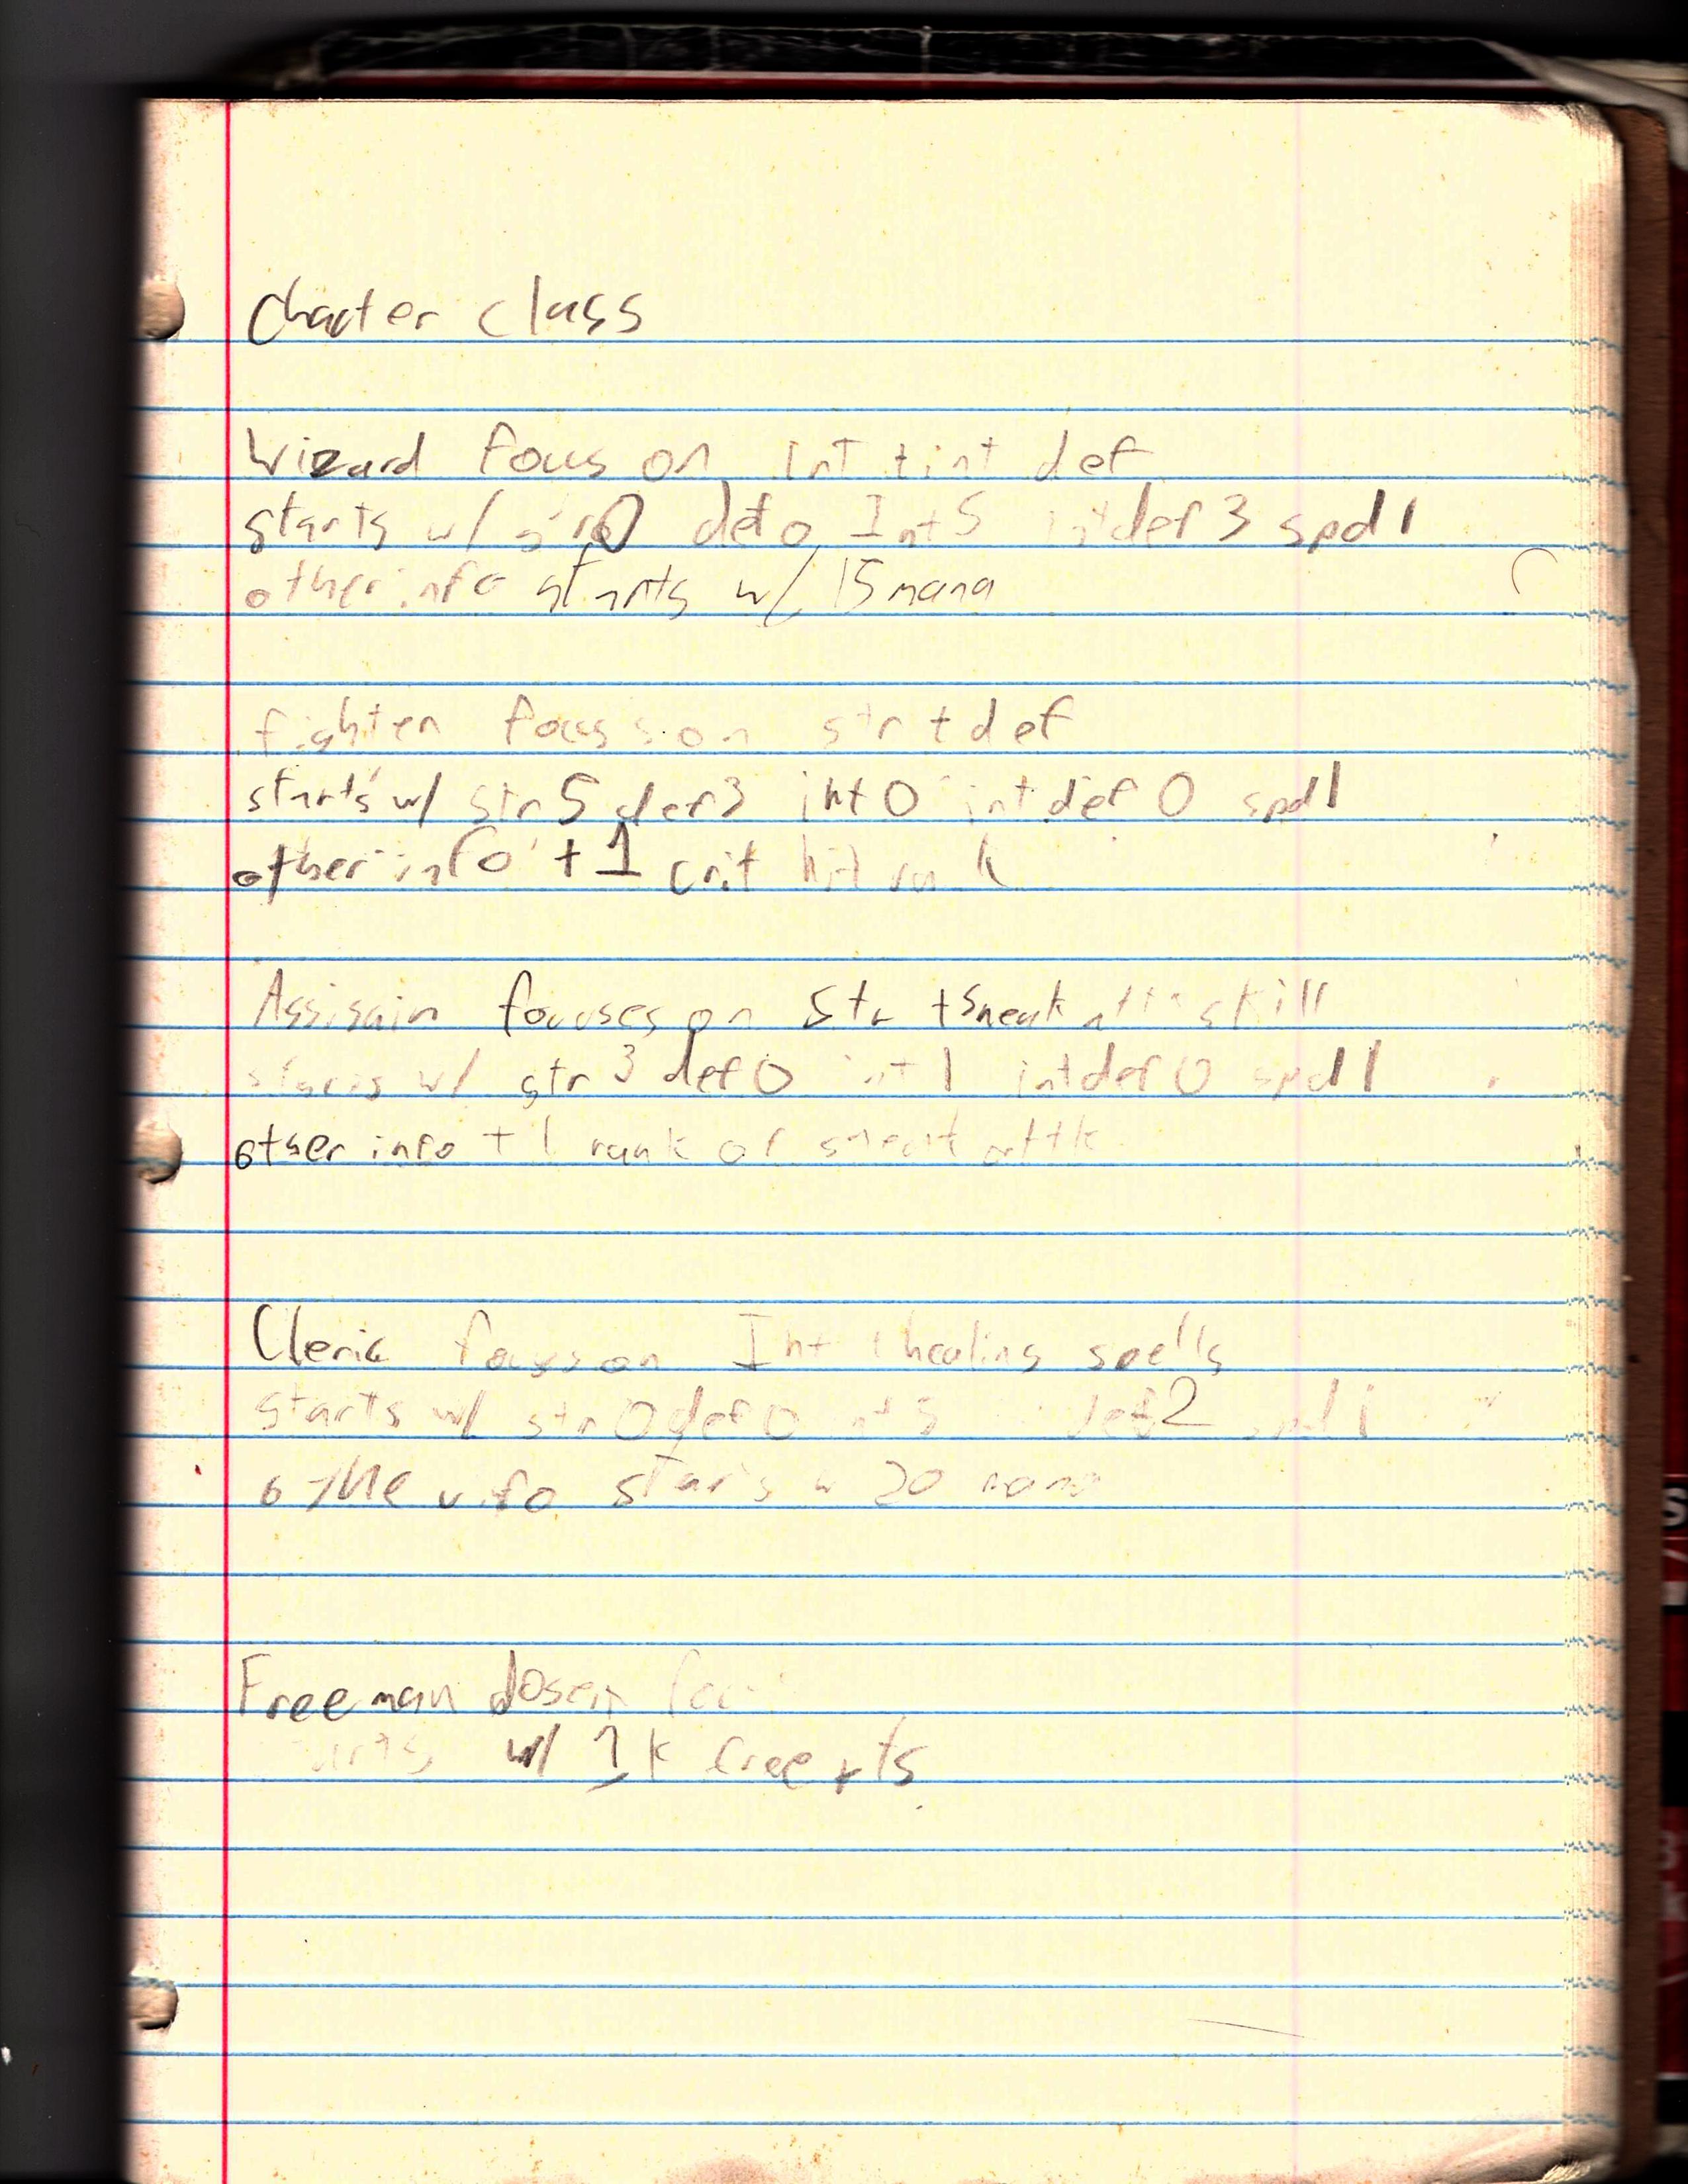 Chacter class
Wizard focus on int + int def
starts w/ str 0 def 0 Int 5 intdef 3 spd 1
other info starts w/ 15 mana
fighter focuses on str + def
starts w/ str 5 def 3 int 0 int def 0 spd 1
other info +1 crit hit rank
Assisain focuses on Str + Sneak attk skill
starts w/ str 3 def 0 int 1 intdef 0 spd 1
other info + 1 rank of sneak attk
Cleric focus on Int + healing spells
starts w/ str 0 def 0 int 5 def 2 spd 1
othe info starts w 20 mana
Freeman dosen
starts w/ 1k free pts